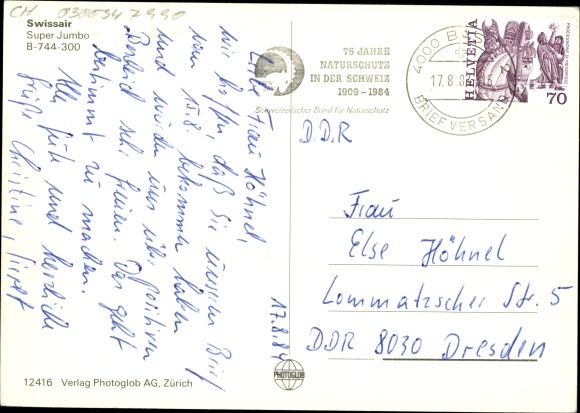 CH 0300347990
Swissair
Super Jumbo
B-744-300
Liebe Frau Höhnel,
wir hoffen, daß Sie unseren Brief
vom 15.8. bekommen haben
und würden uns über positiven
Bescheid sehr freuen. Das geht
bestimmt zu machen.
Alles Gute und herzliche
Grüße Christine,
17.8.84
75 JAHRE
NATURSCHUTZ
IN DER SCHWEIZ
1909 – 1984
Schweizerischer Bund für Naturschutz
4000 B
17.8.8
BRIEFVERSAND
HELVETIA
70
D.D.R
Frau
Else Höhnel
Lommatzscher Str. 5
DDR 8030 Dresden
PHOTOGLOB
12416 Verlag Photoglob AG, Zürich